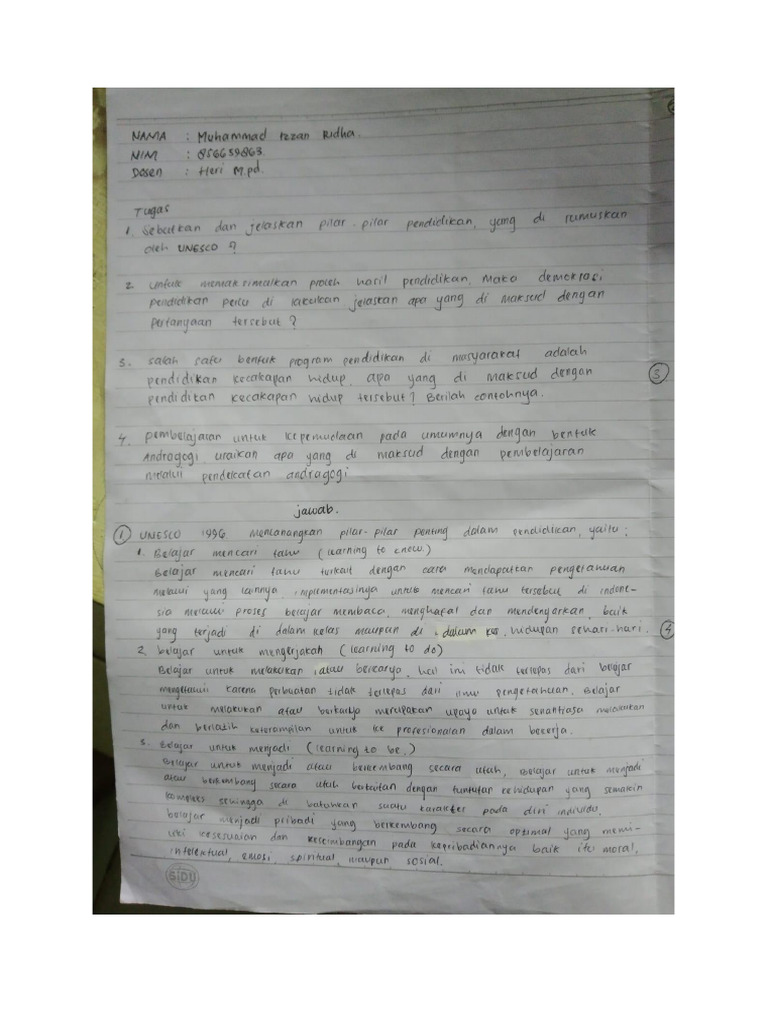 NAMA : Muhammad Izzan Ridha.
NIM : 856659863
Dosen : Heri M.pd.
Tugas
1. Sebutkan dan jelaskan pilar-pilar pendidikan, yang di rumuskan
oleh UNESCO ?
2. Untuk memaksimalkan proleh hasil pendidikan, Maka demokrasi
pendidikan perlu di lakukan jelaskan apa yang di maksud dengan
pertanyaan tersebut ?
3. salah satu bentuk program pendidikan di masyarakat adalah
pendidikan kecakapan hidup, apa yang di maksud dengan
pendidikan kecakapan hidup tersebut? Berilah contohnya.
3
4. pembelajaran untuk kepemudaan pada umumnya dengan bentuk
Andragogi uraikan apa yang di maksud dengan pembelajaran
melalui pendekatan andragogi
jawab.
1 UNESCO 1996 mencanangkan pilar-pilar penting dalam pendidikan, yaitu :
1. Belajar mencari tahu (learning to know.)
Belajar mencari tahu terkait dengan cara mendapatkan pengetahuan
melalui yang lainnya, implementasinya untuk mencari tahu tersebut di indone-
sia melalui proses belajar membaca, menghafal dan mendengarkan, baik
yang terjadi di dalam kelas maupun di dalam ke hidupan sehari-hari.
4
2. belajar untuk mengerjakah (learning to do)
Belajar untuk melakukan atau berkarya, hal ini tidak terlepas dari belajar
mengetahui karena perbuatan tidak terlepas dari ilmu pengetahuan. Belajar
untuk melakukan atau berkarya merupakan upaya untuk senantiasa melakukan
dan berlatih keterampilan untuk ke profesionalan dalam bekerja.
3. Belajar untuk menjadi (learning to be.)
Belajar untuk menjadi atau berkembang secara utuh, Belajar untuk menjadi
atau berkembang secara utuh berkaitan dengan tuntutan kehidupan yang semakin
kompleks sehingga di butuhkan suatu karakter pada diri individu.
belajar menjadi pribadi yang berkembang secara optimal yang memi-
liki kesesuaian dan keseimbangan pada kepribadiannya baik itu moral,
intelektual, emosi spiritual, maupun sosial.
SIDU